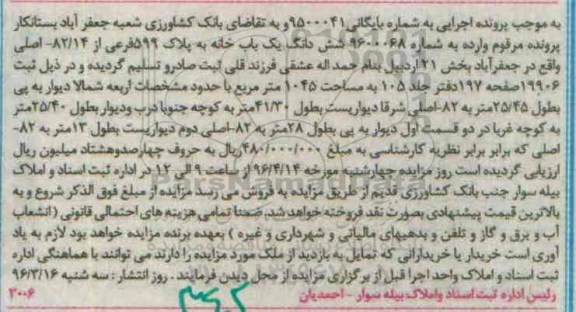 به موجب پرونده اجرایی به شماره بایگانی ۹۵۰۰۰۴۱و به تقاضای بانک کشاورزی شعبه جعفر آباد بستانکار
پرونده مرقوم وارده به شماره ۹۶۰۰۰۶۸ شش دانگ یک باب خانه به پلاک ۵۹۹فرعی از ۸۲/۱۴- اصلی
واقع در جعفرآباد بخش ۲۱ اردبیل بنام حمد اله عشقی فرزند قلی ثبت صادرو تسلیم گردیده و در ذیل ثبت
۱۹۹۰۶صفحه ۱۹۷دفتر جلد ۱۰۵ به مساحت ۱۰۴۵ متر مربع با حدود مشخصات اربعه شمالا دیوار به پی
بطول ۲۵/۴۵متر به ۸۲-اصلی شرقا دیواریست بطول ۴۱/۳۰متر به کوچه جنوبا درب ودیوار بطول ۲۵/۴۰متر
به کوچه غربا در دو قسمت اول دیوار به پی بطول ۲۸متر به ۸۲-اصلی دوم دیواریست بطول ۱۳متر به ۸۲-
اصلی که برابر برابر نظریه کارشناسی به مبلغ ۴۸۰/۰۰۰/۰۰۰ریال به حروف چهارصدوهشتاد میلیون ریال
ارزیابی گردیده است روز مزایده چهارشنبه مورخه ۹۶/۴/۱۴ از ساعت ۹ الی ۱۲ در اداره ثبت اسناد و املاک
بیله سوار جنب بانک کشاورزی قدیم از طریق مزایده به فروش می رسد مزایده از مبلغ فوق الذکر شروع و به
بالاترین قیمت پیشنهادی بصورت نقد فروخته خواهد شد. ضمنا تمامی هزینه های احتمالی قانونی (انشعاب
آب و برق و گاز و تلفن و بدهیهای مالیاتی و شهرداری و غیره ) بعهده برنده مزایده خواهد بود لازم به یاد
آوری است خریدار یا خریدارانی که تمایل به بازدید از ملک مورد مزایده را دارند می توانند با هماهنگی اداره
ثبت اسناد و املاک واحد اجرا قبل از برگزاری مزایده از محل دیدن فرمایند . روز انتشار : سه شنبه ۹۶/۳/۱۶
رئیس اداره ثبت اسناد واملاک بیله سوار -احمدیان
۳۰۰۶